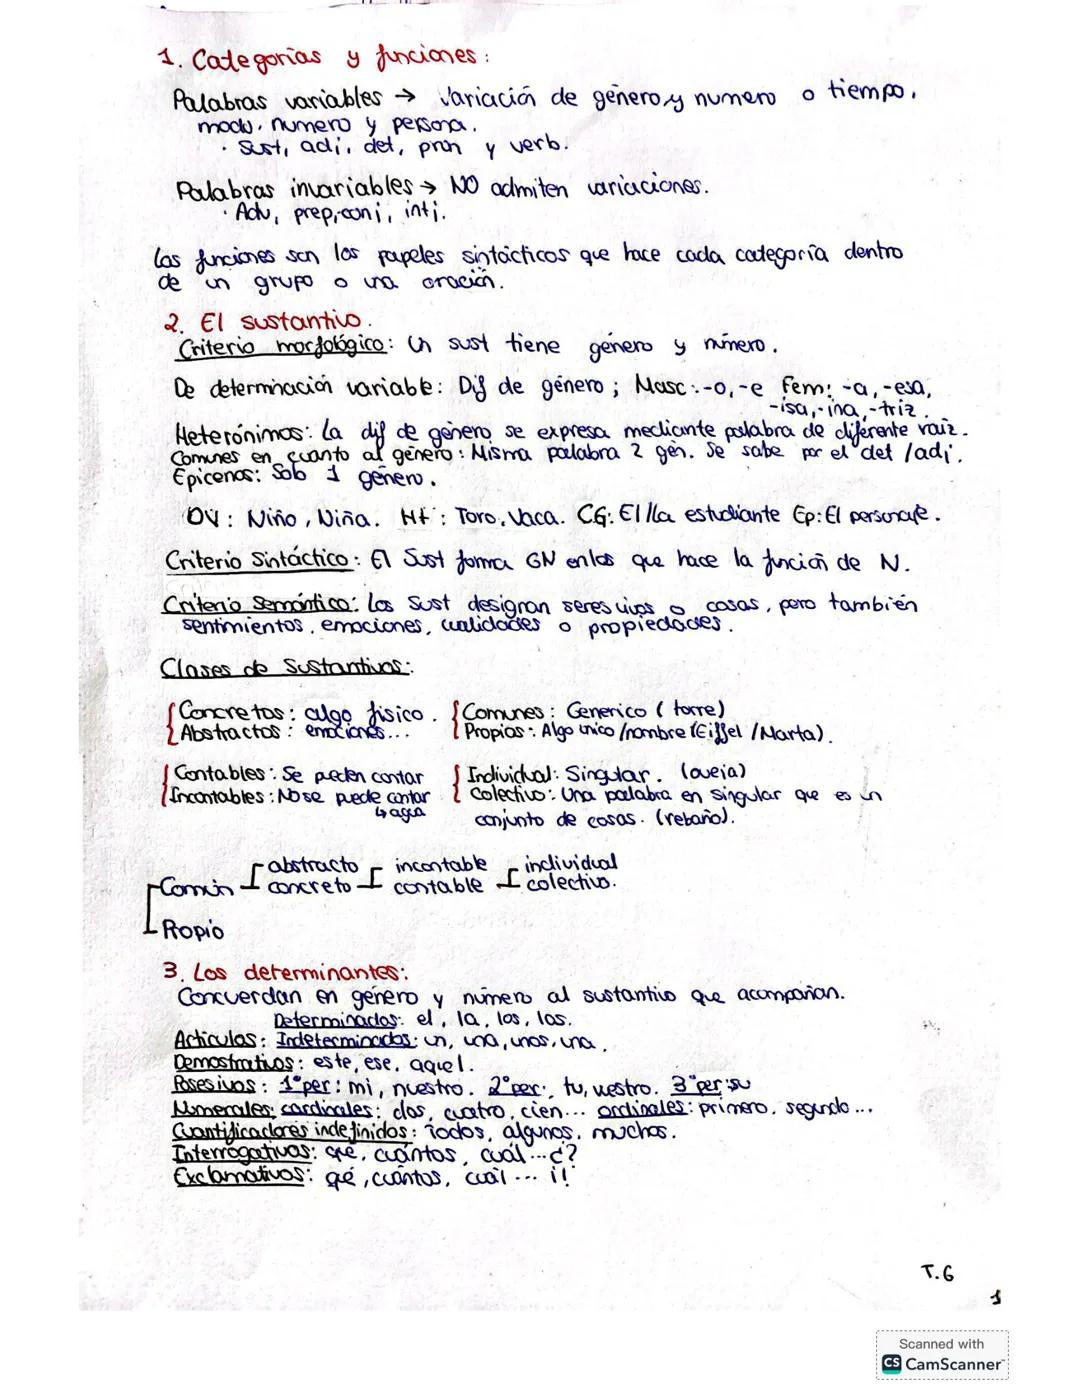 1. Categorías y funciones:
Palabras variables → Variación de género y numero o tiempo,
modo, numero y persona.
· Sust, adj, det, pron y verb.
Palabras invariables → NO admiten variaciones.
· Adv, prep, conj, intj.
Las funciones son los papeles sintácticos que hace cada categoría dentro
de un grupo o una oración.
2. El sustantivo.
Criterio morfológico: Un sust tiene género y número.
De determinación variable: Dif de género; Masc: -o, -e Fem: -a, -esa,
-isa, -ina, -triz.
Heterónimos: La dif de género se expresa mediante palabra de diferente raiz.
Comunes en cuanto al género: Misma palabra 2 gén. Se sabe por el det /adj.
Epicenos: Solo 1 género.
DV: Niño, Niña. Ht: Toro, Vaca. CG: El/la estudiante Ep: El personaje.
Criterio Sintáctico: El Sust forma GN en los que hace la función de N.
Criterio Semántico: Los Sust designan seres vivos o cosas, pero también
sentimientos, emociones, cualidades o propiedades.
Clases de Sustantivos:
Concretos: algo físico. Comunes: Generico (torre)
Abstractos: emociones... Propios: Algo único/nombre (Eiffel /Marta).
Contables: Se pueden contar Individual: Singular. (oveja)
Incontables: No se puede contar Colectivo: Una palabra en singular que es un
↳ agua conjunto de cosas. (rebaño).
abstracto incontable individual
Común concreto contable colectivo.
Propio
3. Los determinantes:
Concuerdan en género y número al sustantivo que acompañan.
Determinados: el, la, los, las.
Articulos: Indeterminados: un, una, unos, una.
Demostrativos: este, ese, aquel.
Posesivos: 1ºper: mi, nuestro. 2ºper: tu, vestro. 3ºper: su
Numerales: cardinales: dos, cuatro, cien... ordinales: primero, segundo...
Cuantificadores indefinidos: Todos, algunos, muchos.
Interrogativos: qué, cuántos, cuál...¿?
Exclamativos: qué, cuántos, cuál ... ¡!
T.6
1
Scanned with
CS CamScanner